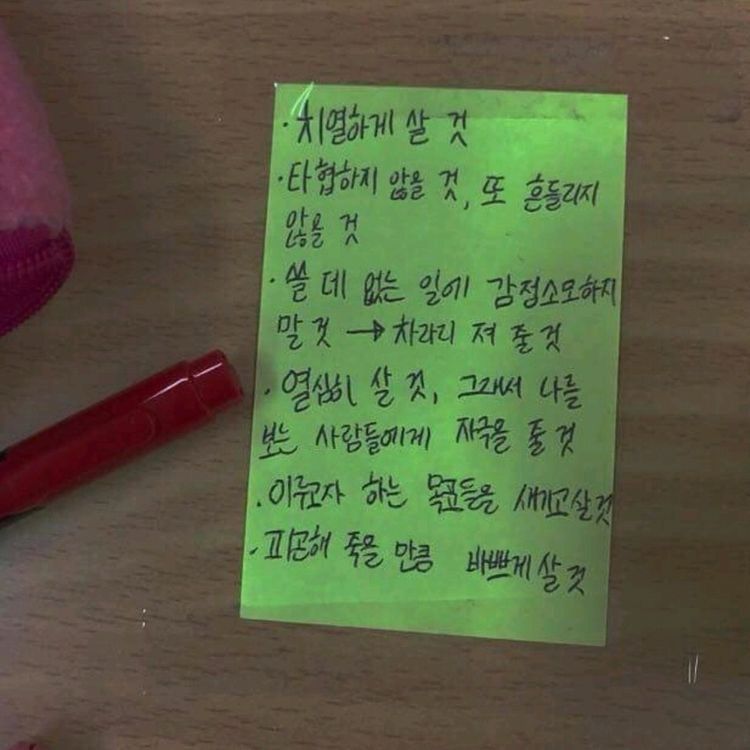 · 치열하게 살 것
· 타협하지 않을 것, 또 흔들리지
않을 것
· 쓸 데 없는 일에 감정소모하지
말 것 → 차라리 져 줄 것
· 열심히 살 것, 그래서 나를
보는 사람들에게 자극을 줄 것
· 이루고자 하는 목표들을 새기고 살 것
· 피곤해 죽을 만큼 바쁘게 살 것